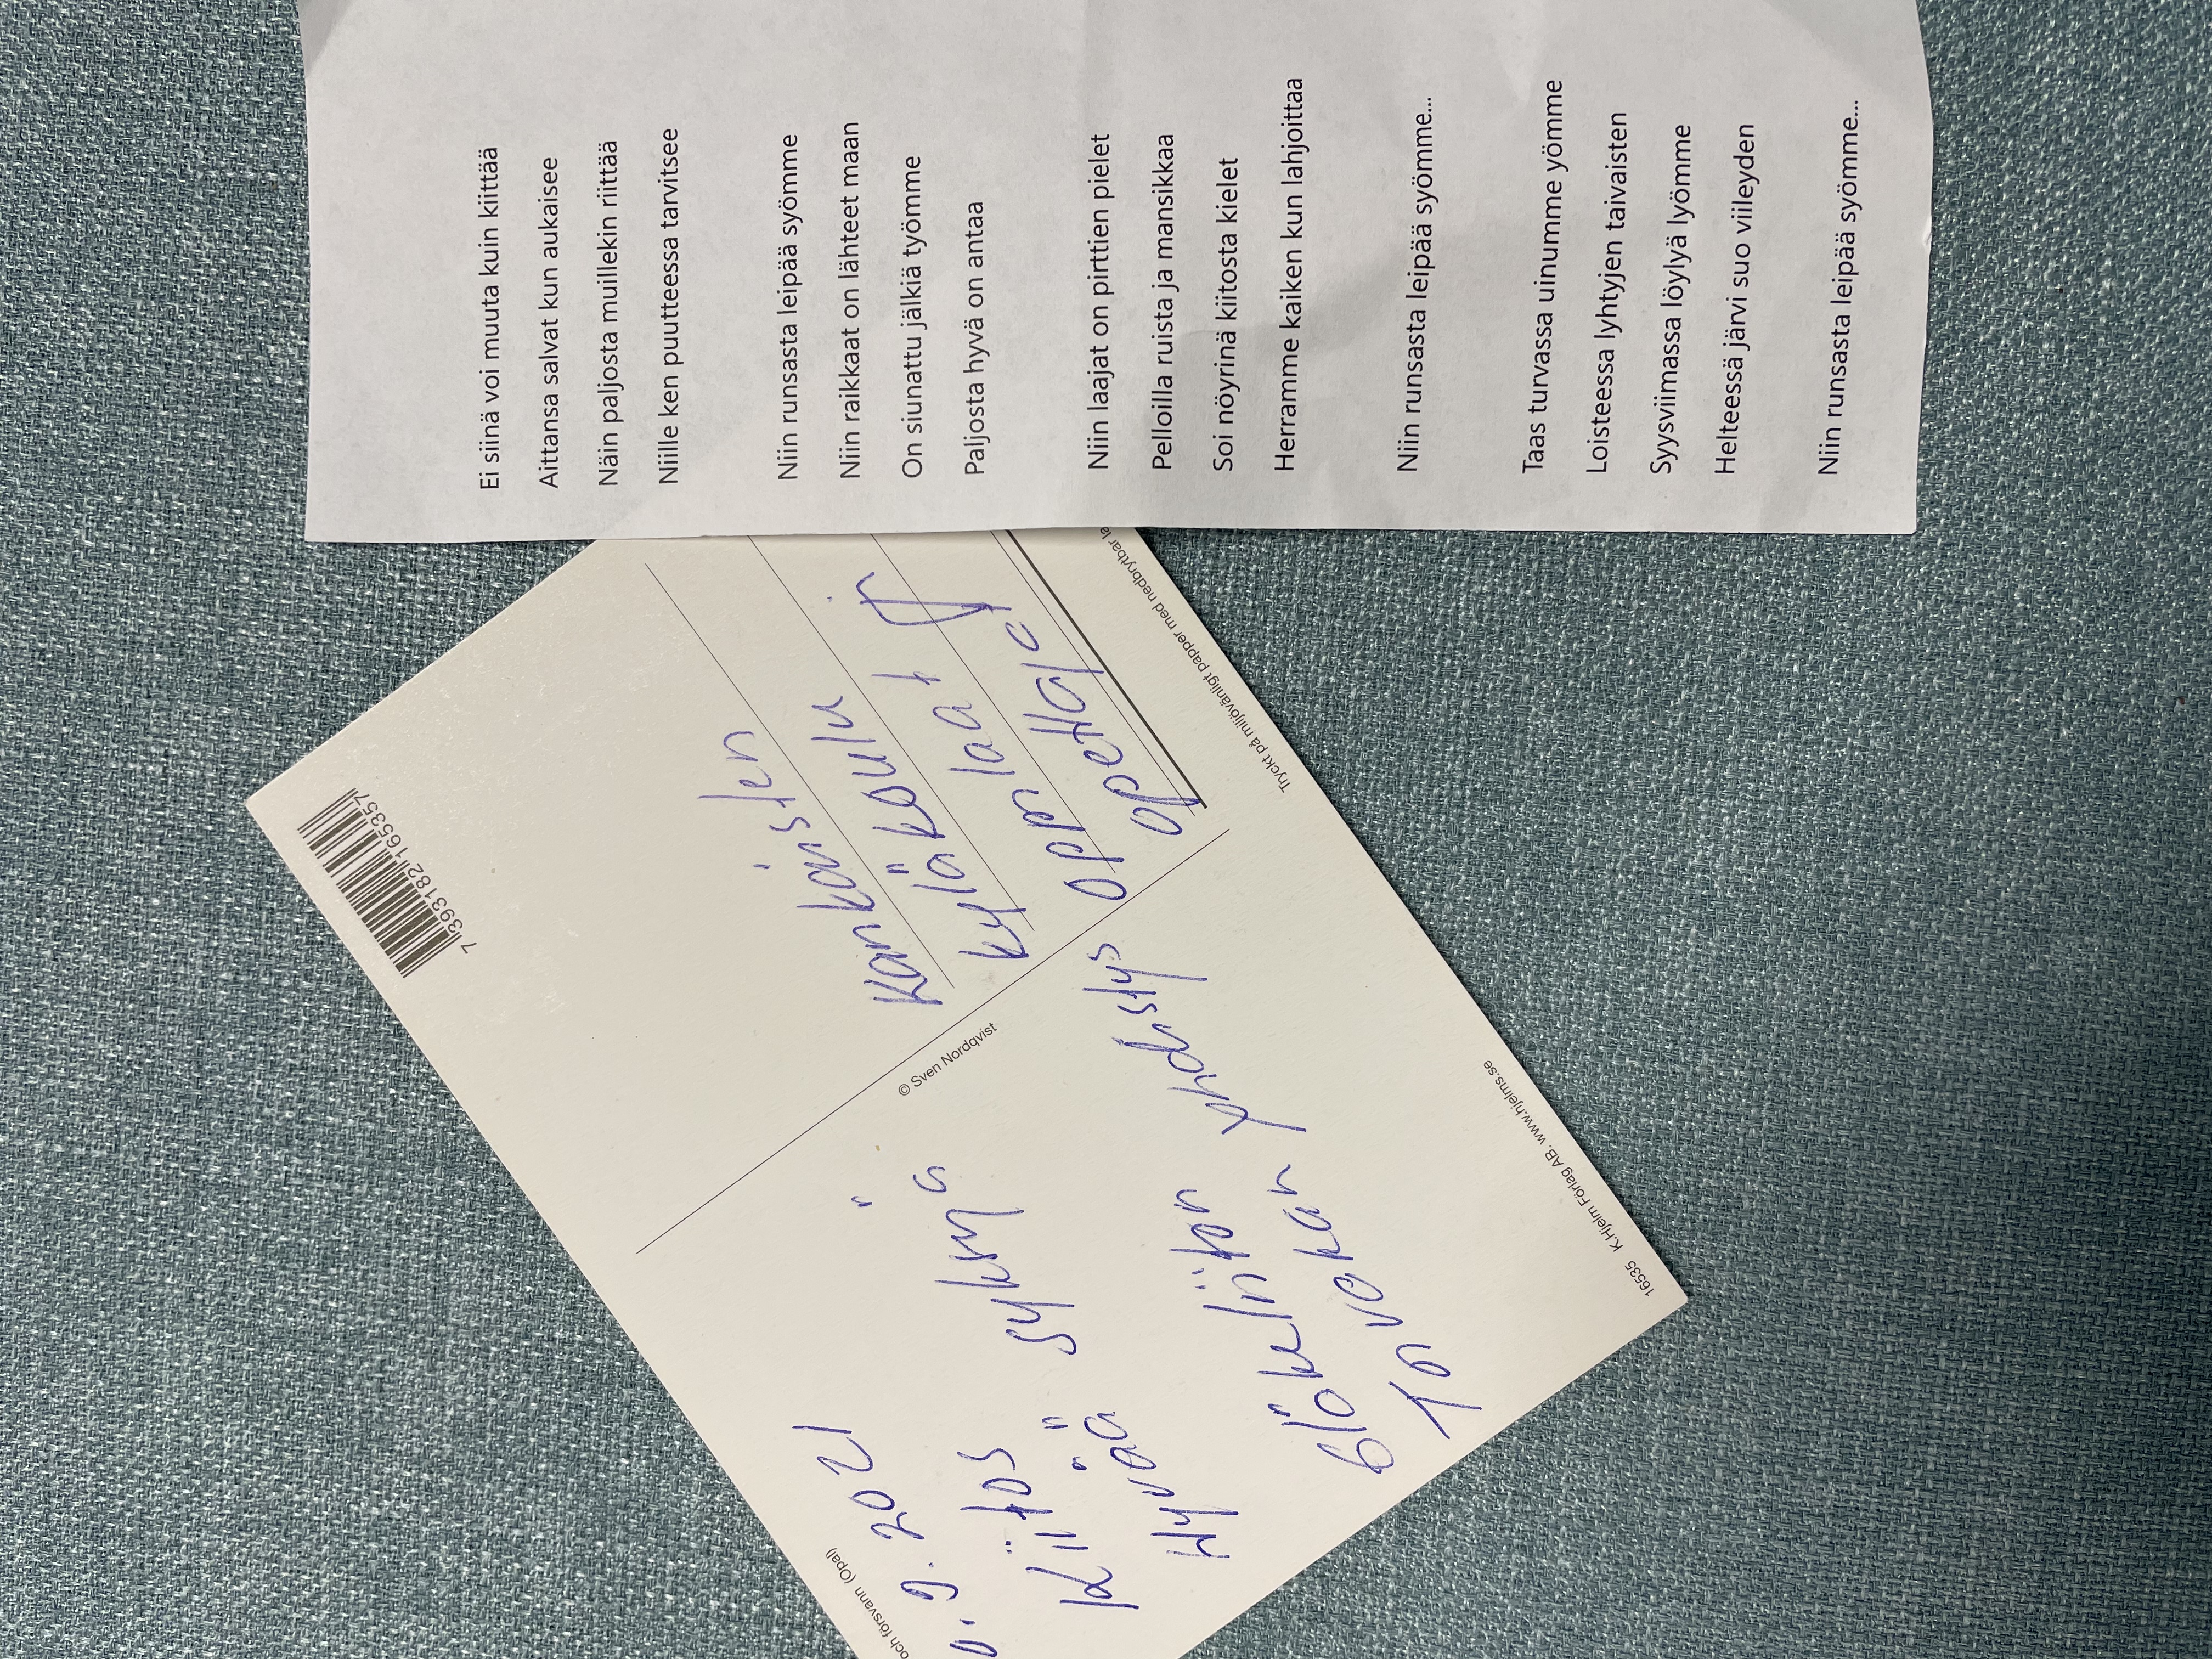 Ei siinä voi muuta kuin kiittää
Aittansa salvat kun aukaisee
Näin paljosta muillekin riittää
Niille ken puutteessa tarvitsee
Niin runsasta leipää syömme
Niin raikkaat on lähteet maan
On siunattu jälkiä työmme
Paljosta hyvä on antaa
Niin laajat on pirttien pielet
Pelloilla ruista ja mansikkaa
Soi nöyrinä kiitosta kielet
Herramme kaiken kun lahjoittaa
Niin runsasta leipää syömme...
Taas turvassa uinumme yömme
Loisteessa lyhtyjen taivaisten
Syysviimassa löylyä lyömme
Helteessä järvi suo viileyden
Niin runsasta leipää syömme...
och försvann (Opal)
9. 2021
Kiitos
Hyvää syksyä
Glökuliiton yhdistys
© Sven Nordqvist
7 393182 165357
Kankaisten
kyläkoulu
oppilaat
opettajat
Tryckt på miljövänligt papper med nedbrytbar
16535 K.Hjelm Förlag AB. www.hjelms.se